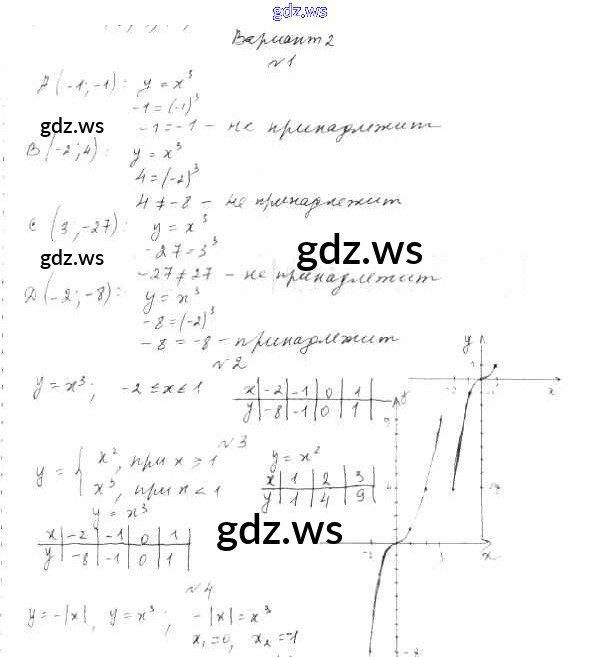 gdz.ws
Вариант 2
№1
A(-1;-1): y = x³
-1 = (-1)³
gdz.ws
-1 = -1 - не принадлежит
B(-2;4): y = x³
4 = (-2)³
4 ≠ -8 - не принадлежит
C(3;-27): y = x³
gdz.ws
-27 = 3³
gdz.ws
-27 ≠ 27 - не принадлежит
D(-2;-8): y = x³
-8 = (-2)³
-8 = -8 - принадлежит
№2
y = x³; -2 ≤ x ≤ 1
x | -2 | -1 | 0 | 1
y | -8 | -1 | 0 | 1
y
x
№3
y = { x², при x ≥ 1
x³, при x < 1
y = x²
x | 1 | 2 | 3
y | 1 | 4 | 9
y = x³
x | -2 | -1 | 0 | 1
y | -8 | -1 | 0 | 1
gdz.ws
y
9
4
-2
3
x
-8
№4
y = -|x|, y = x³; -|x| = x³
x₁ = 0, x₂ = -1